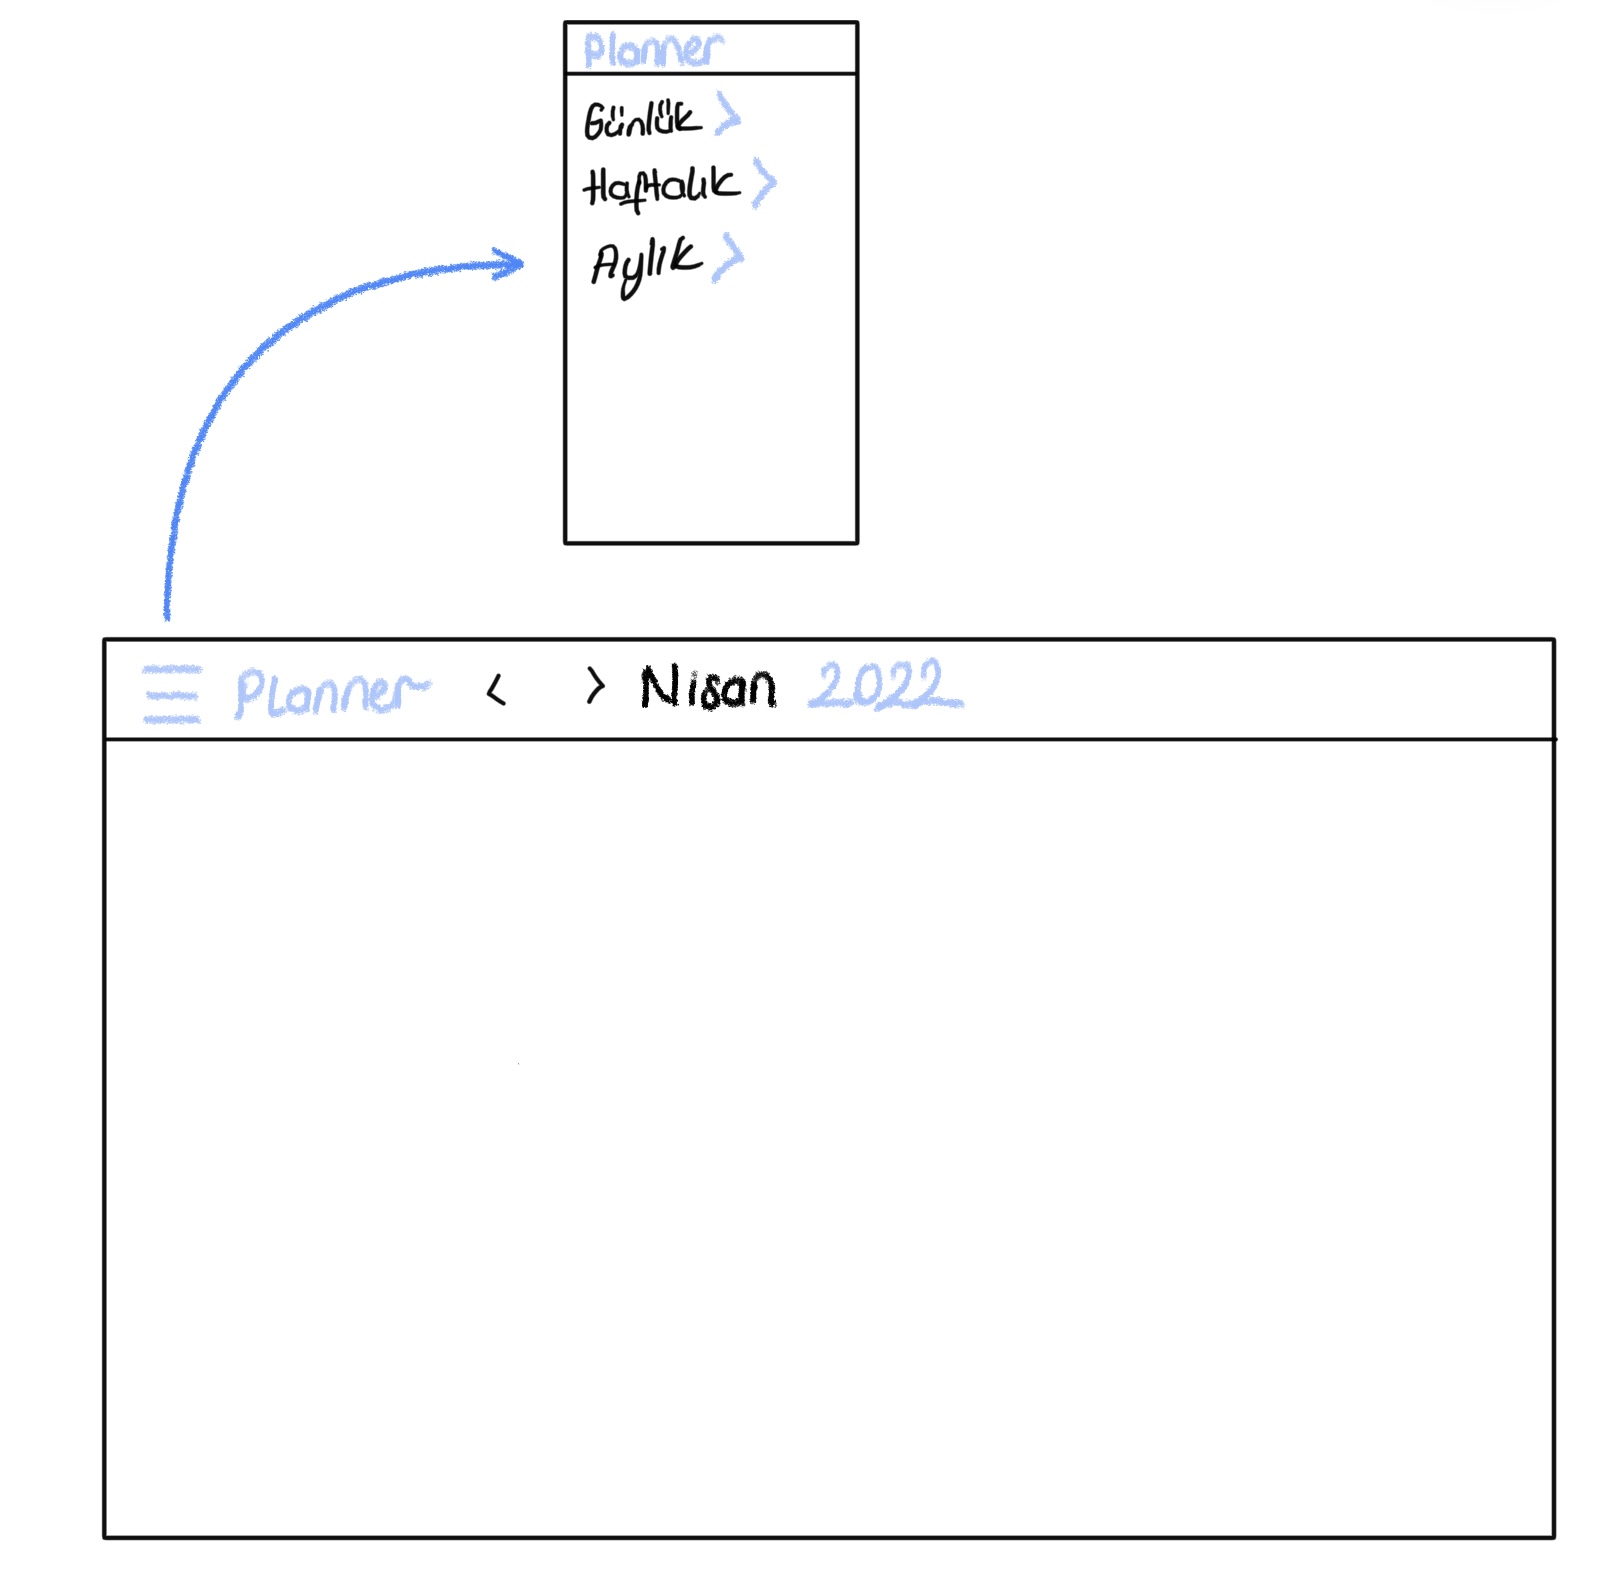 Planner
Günlük >
Haftalık >
Aylık >
Planner < > Nisan 2022